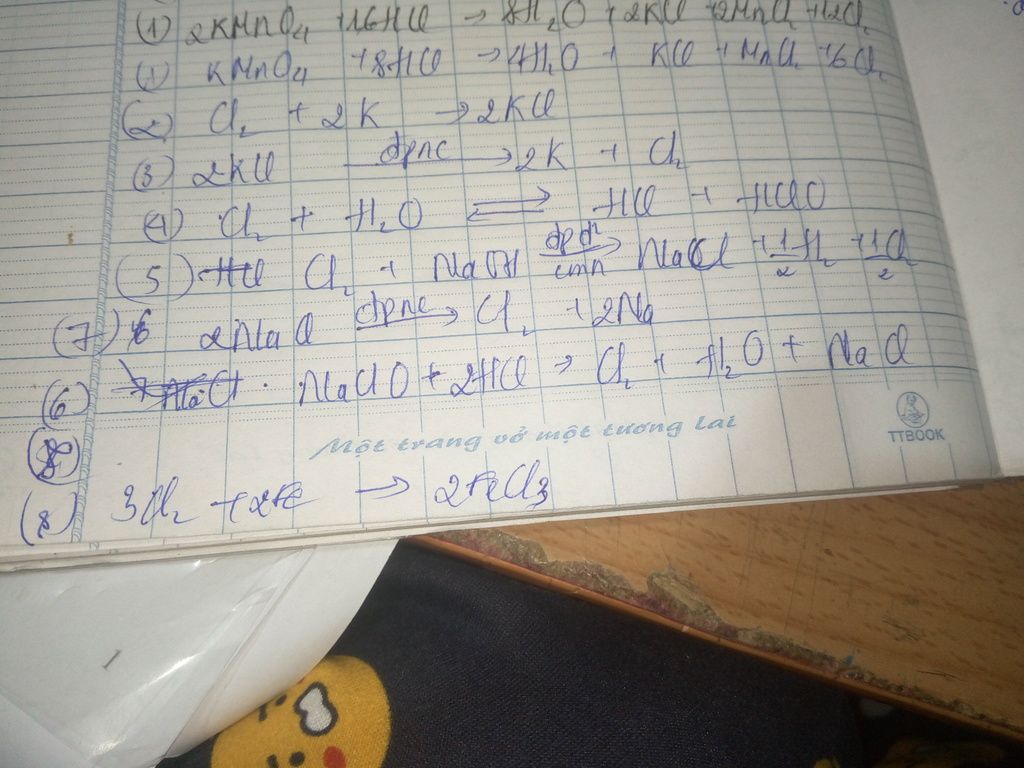 (1) 2KMnO4 + 16HCl → 8H2O + 2KCl + 2MnCl2
(1) KMnO4 + 8HCl → 4H2O + KCl + MnCl2 + 6Cl2
(2) Cl2 + 2K → 2KCl
(3) 2KCl đpnc → 2K + Cl2
(4) Cl2 + H2O ⇌ HCl + HClO
(5) Cl2 + NaOH đpdd cmn → NaCl + 1/2 H2 + 1/2 Cl
(7) 2NaCl đpnc → Cl2 + 2Na
(6) NaClO + 2HCl → Cl2 + H2O + NaCl
Một trang vở một tương lai
TTBOOK
(8) 3Cl2 + 2Fe → 2FeCl3
1